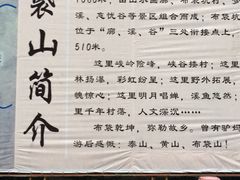 袋山简介
溪、恋忧谷等景区组合而成；布袋
位于“廊、溪、谷”三处衔接点上，
510米。
这里峡岭险峰，峡谷揍村；这里
林挡瀑，彩虹纷呈；这里野外拓展，
魄惊心；这里明月唱蝉，溪鱼悠然
里千年村落，人文深沉……
布袋乾坤，弥勒故乡。曾有驴妈
游后感慨：泰山、黄山、布袋山！